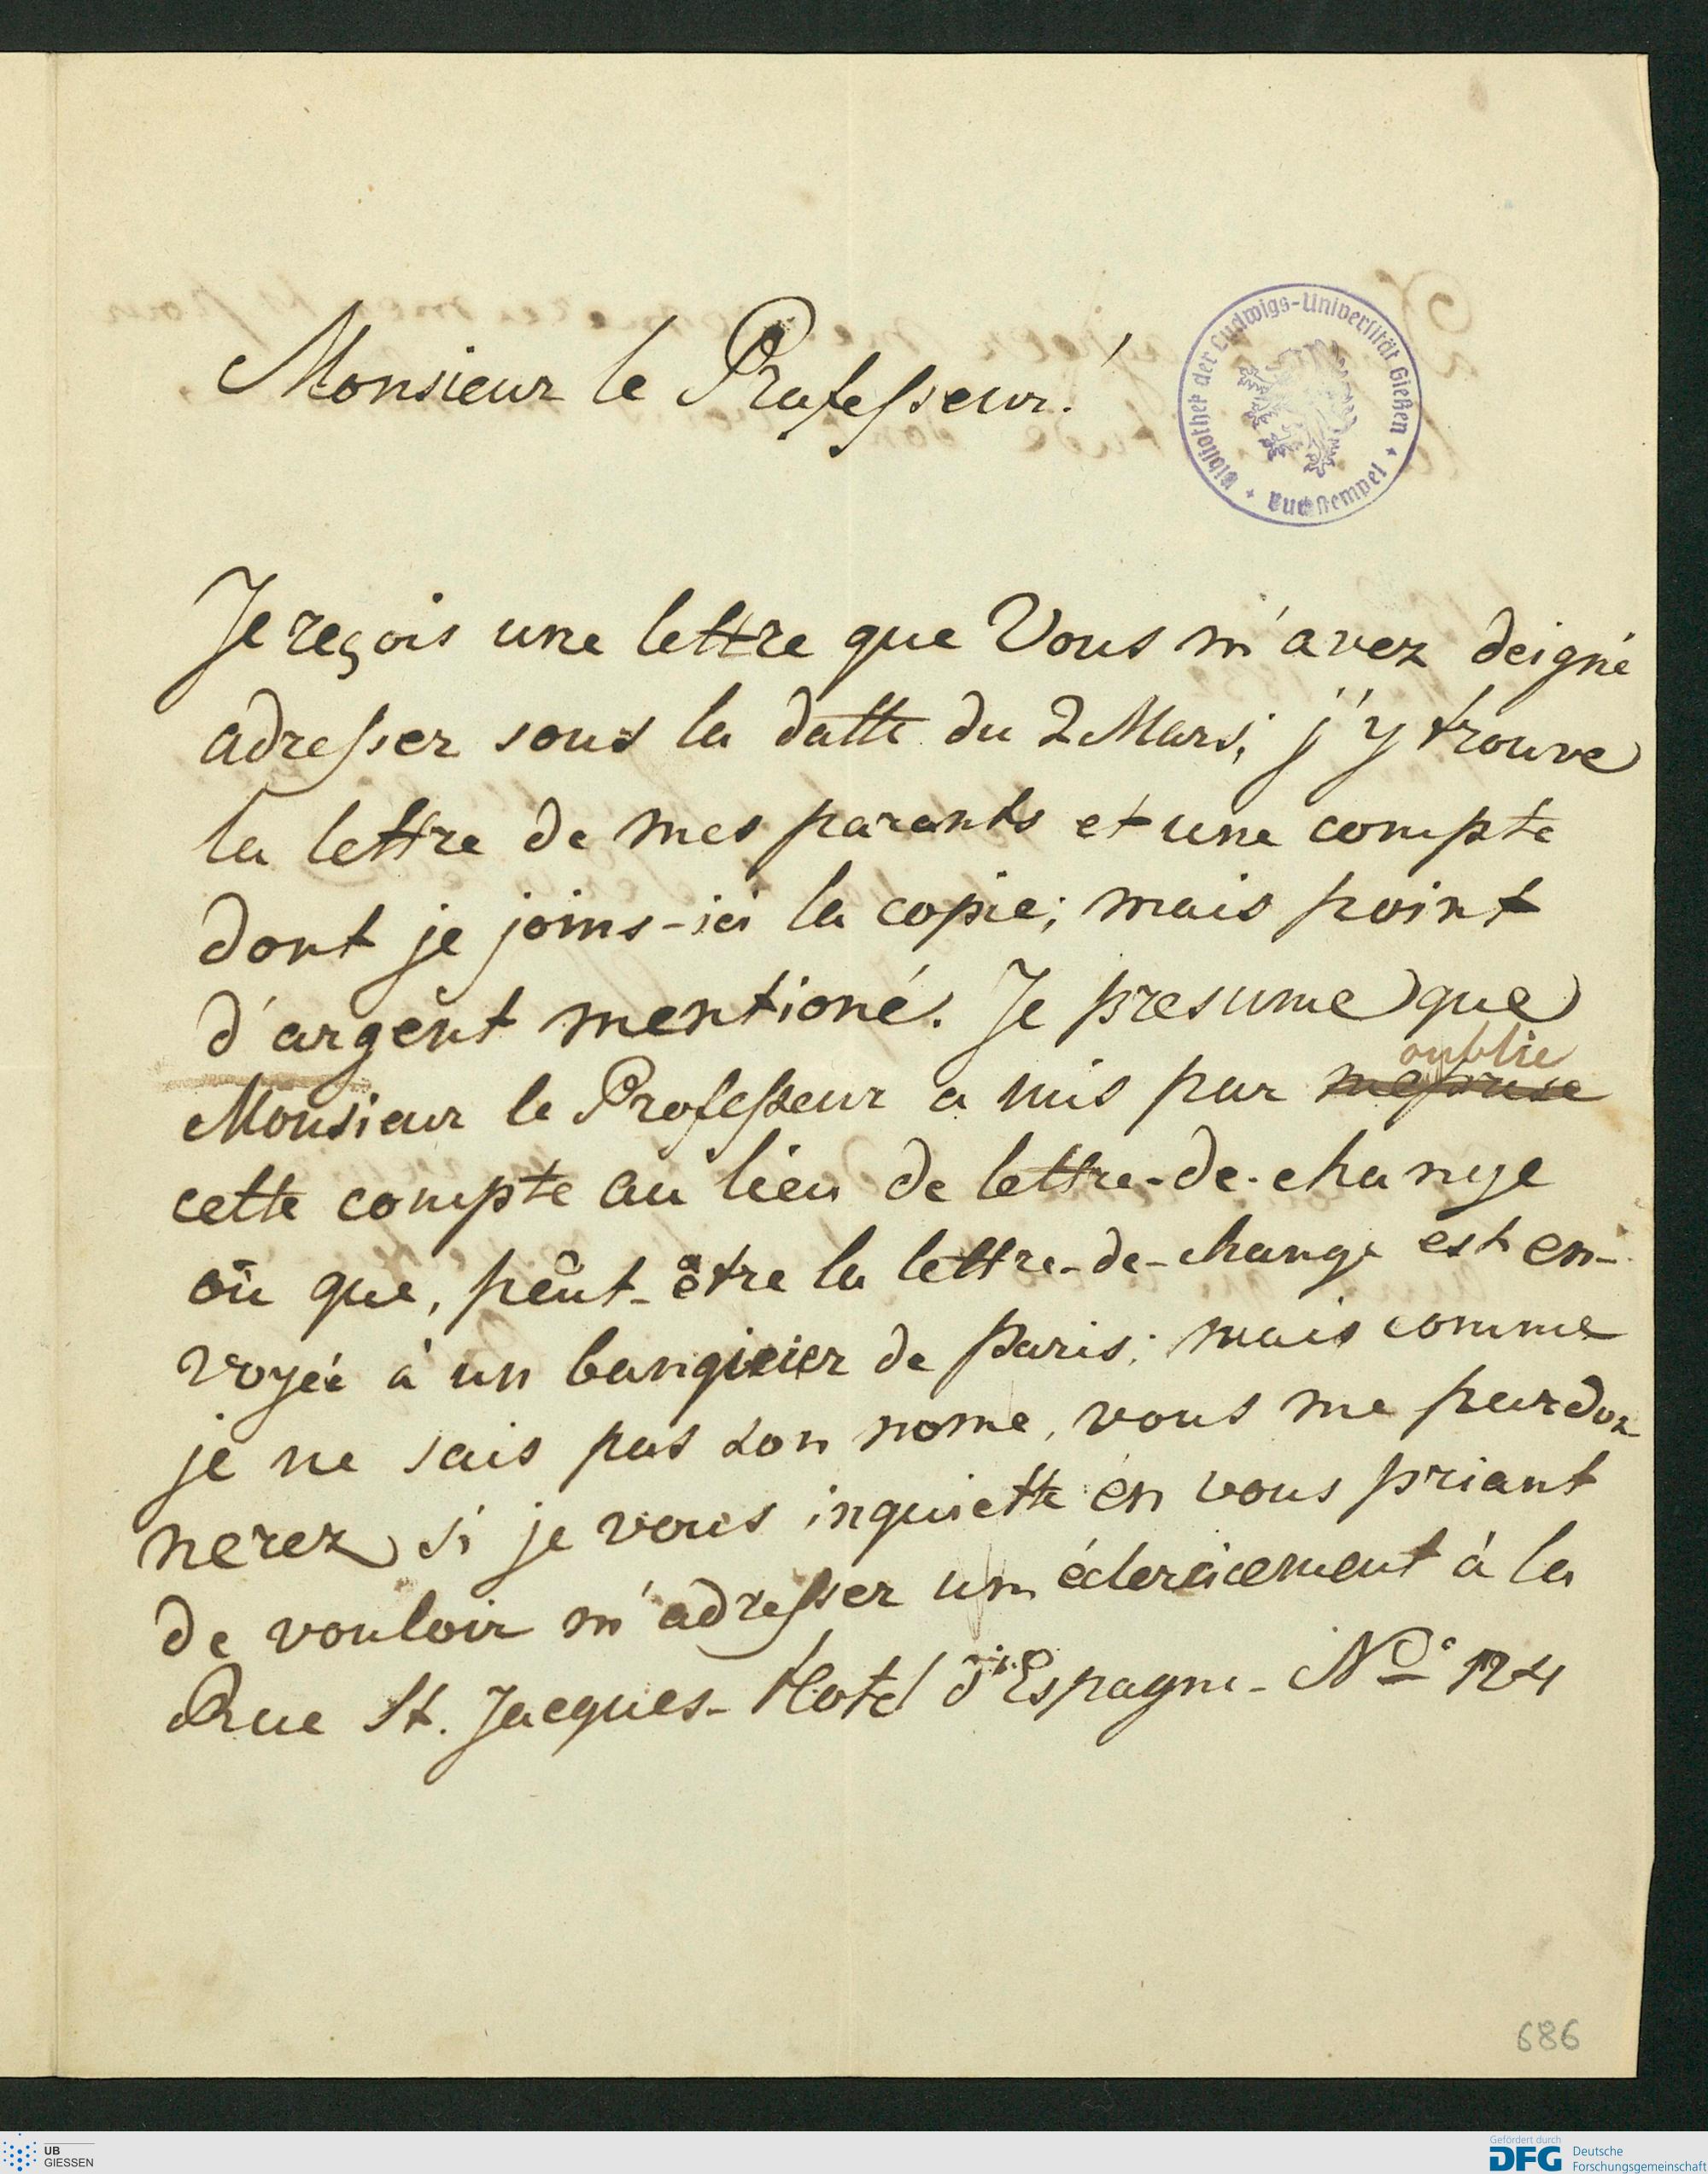 Monsieur le Professeur!
Bibliothek der Ludwigs-Universität Gießen + Buchstempel +
Je reçois une lettre que Vous m'avez deigné
adresser sous la datte du 2 Mars; j'y trouve
la lettre de mes parants et une compte
dont je joins-ici la copie; mais point
d'argent mentioné. Je presume que
oublie
Monsieur le Professeur a mis par meprise
cette compte au lieu de lettre-de-change
où que, peût-être la lettre-de-change est en-
voyée à un banquier de Paris; mais comme
je ne sais pas son nome, vous me pardon
nerez si je vous inquiette en vous priant
de vouloir m'adresser un éclercicement à la
Rue St. Jacques- Hotel d'Espagne- No 124
686
UB
GIESSEN
Gefördert durch
DFG Deutsche
Forschungsgemeinschaft